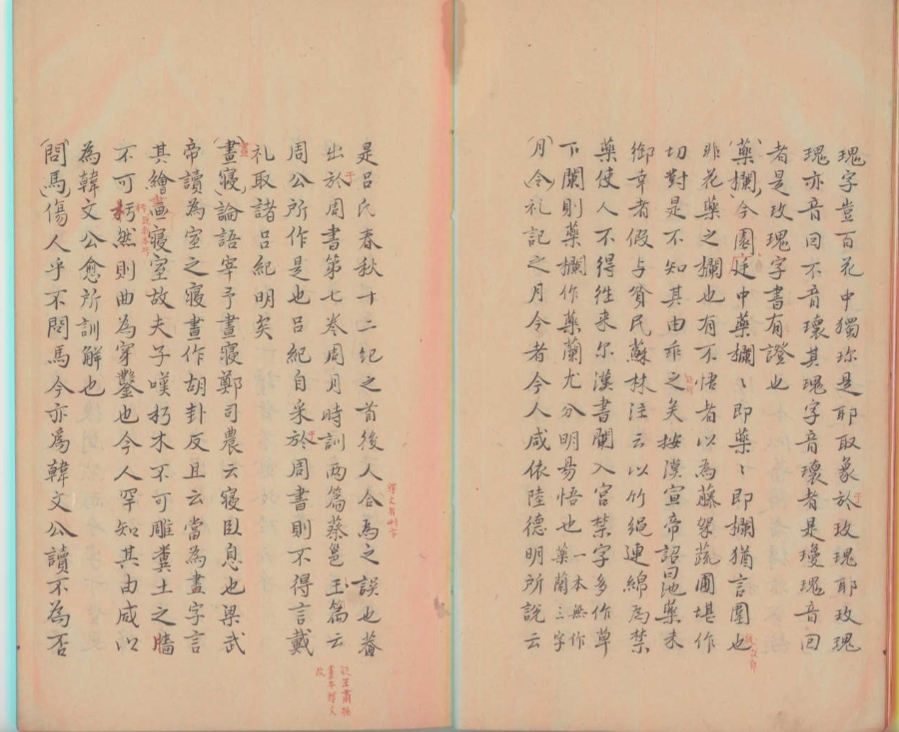 瑰字豈百花中獨珎是耶取象於玫瑰耶玫瑰
瑰亦音回不音瓌其瑰字音瓌者是瓊瑰音回
者是玫瑰字書有證也
藥欄今園廷中藥欄〻即藥〻即欄猶言圍也
非花藥之欄也有不悟者以為藤架蔬圃堪作
切對是不知其由乖之矣按漢宣帝詔曰池藥未
御幸者假与貧民蘇林注云以竹繩連綿為禁
藥使人不得往来尔漢書闌入宫禁字多作草
下闌則藥欄作藥蘭尤分明易悟也一本無作藥蘭三字
月令礼記之月令者今人咸依陸德明所說云
是吕氏春秋十二紀之首後人合為之誤也蓋
出於周書第七卷周月時訓两篇蔡邕玉篇云
周公所作是也吕紀自采於周書則不得言戴
礼取諸吕紀明矣
晝寢論語宰予晝寢鄭司農云寢臥息也梁武
帝讀為室之寢晝作胡卦反且云當為畫字言
其繪畫寢室故夫子嘆朽木不可雕糞土之牆
不可朽然則曲為穿鑿也今人罕知其由咸以
為韓文公愈所訓解也
問馬傷人乎不問馬今亦為韓文公讀不為否